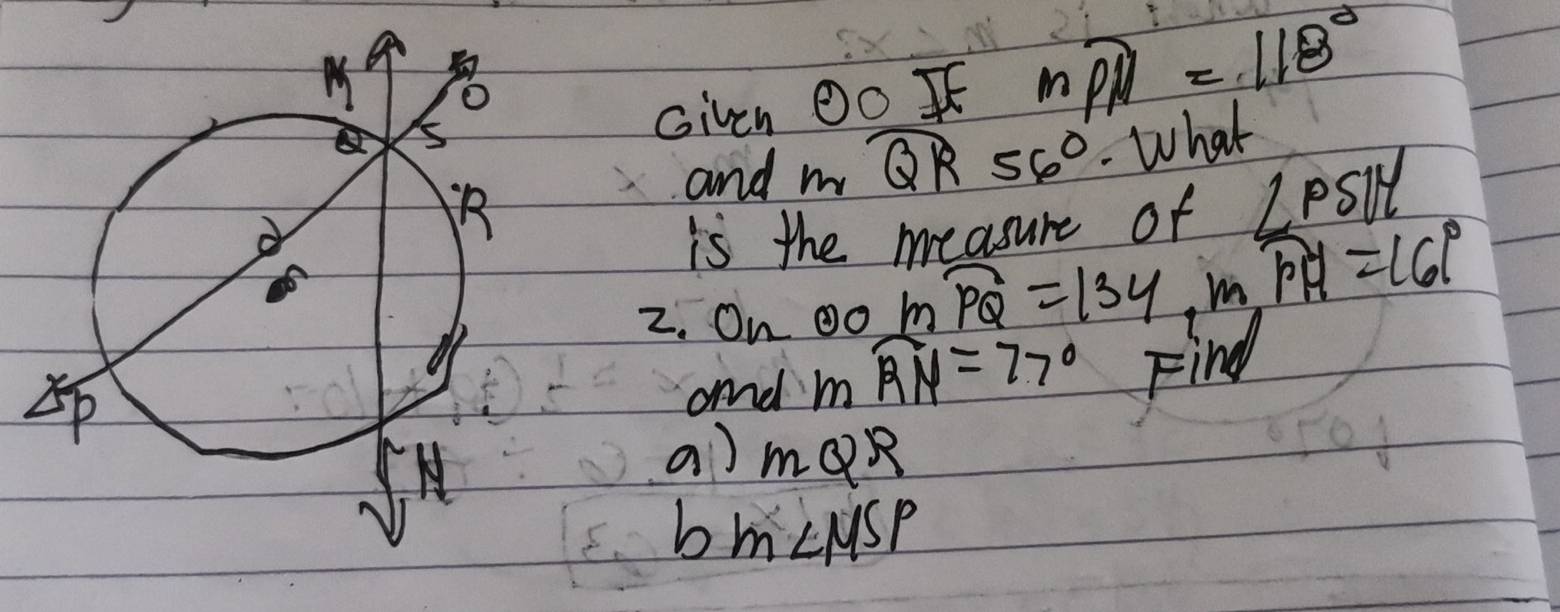 M
O
Q
S
R
d
P
N
Given ΘO If m PN = 118°
and m QR 56°. What
is the measure of ∠PSN
2. On ΘO m PQ = 134, m PN = 161°
and m RN = 77° Find
a) m QR
b m∠NSP